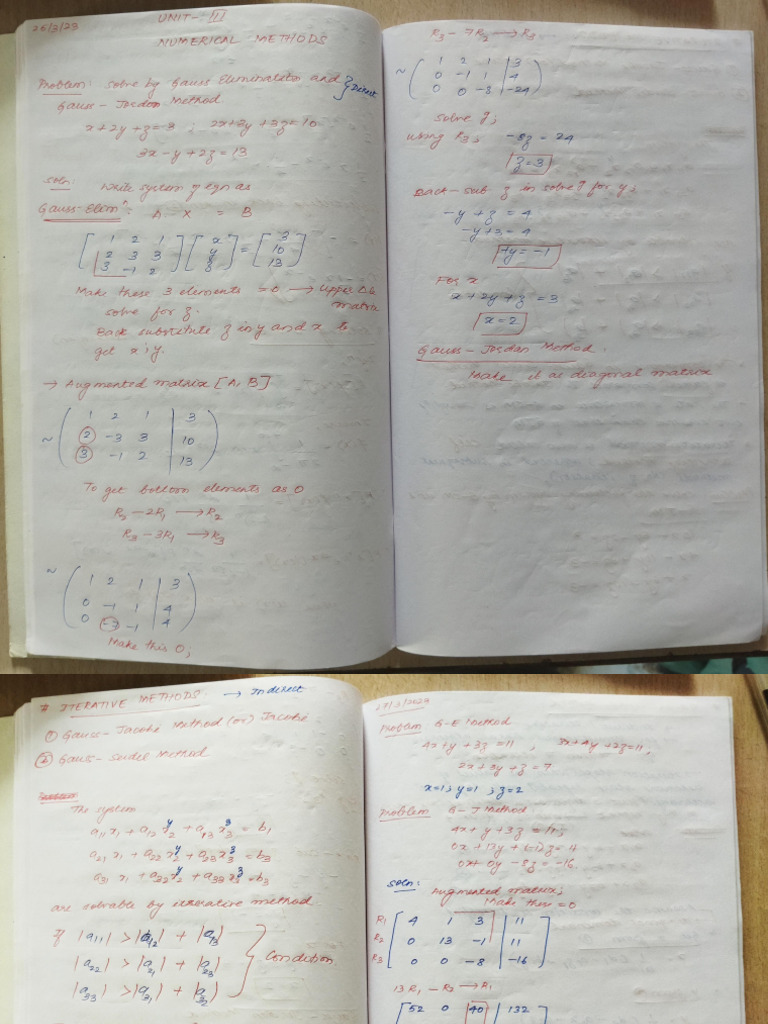 26/3/29
UNIT- III
NUMERICAL METHODS
Problem: solve by Gauss Elimination and } Direct
Gauss-Jordan Method
x+2y+z=3 ; 2x+3y+3z=10
3x-y+2z=13
soln: Write system of eqn as
Gauss-Elimn: A X = B
[ 1 2 1 ] [ x ] = [ 3 ]
[ 2 3 3 ] [ y ] [ 10 ]
[ 3 -1 2 ] [ z ] [ 13 ]
Make these 3 elements =0 → Upper Δle matrix
solve for z.
Back substitute z in y and x to
get x, y.
→ Augmented matrix [A, B]
~ ( 1 2 1 | 3 )
( 2 -3 3 | 10 )
( 3 -1 2 | 13 )
To get bottom elements as 0
R2 - 2R1 → R2
R3 - 3R1 → R3
~ ( 1 2 1 | 3 )
( 0 -1 1 | 4 )
( 0 -7 -1 | 4 )
Make this 0;
R3 - 7R2 → R3
~ ( 1 2 1 | 3 )
( 0 -1 1 | 4 )
( 0 0 -8 | -24 )
solve z;
using R3; -8z = 24
z=3
Back-sub z in solve for y;
-y + z = 4
-y+3 = 4
+y = -1
For x
x+2y+z = 3
x=2
Gauss-Jordan Method.
Make it as diagonal matrix
# ITERATIVE METHODS. → Indirect
① Gauss-Jacobi Method (or) Jacobi
② Gauss-Seidel Method
The system
a11 x1 + a12 x2 y + a13 x3 z = b1
a21 x1 + a22 x2 y + a23 x3 z = b3
a31 x1 + a32 x2 y + a33 x3 z = b3
are solvable by iterative method
if |a11| > |a12| + |a13|
|a22| > |a21| + |a23| } Condition
|a33| > |a31| + |a32|
27/3/2029
Problem G-E Method
4x+y+3z=11 , 3x+4y+2z=11,
2x+3y+z=7.
x=1; y=1; z=2
Problem G-J Method
4x+y+3z = 11;
0x+13y+(-1)z = 4
0x+0y-8z = -16.
soln: Augmented matrix;
Make these =0
R1 [ 4 1 3 | 11 ]
R2 [ 0 13 -1 | 11 ]
R3 [ 0 0 -8 | -16 ]
13R1 - R2 → R1
[ 52 0 40 | 132